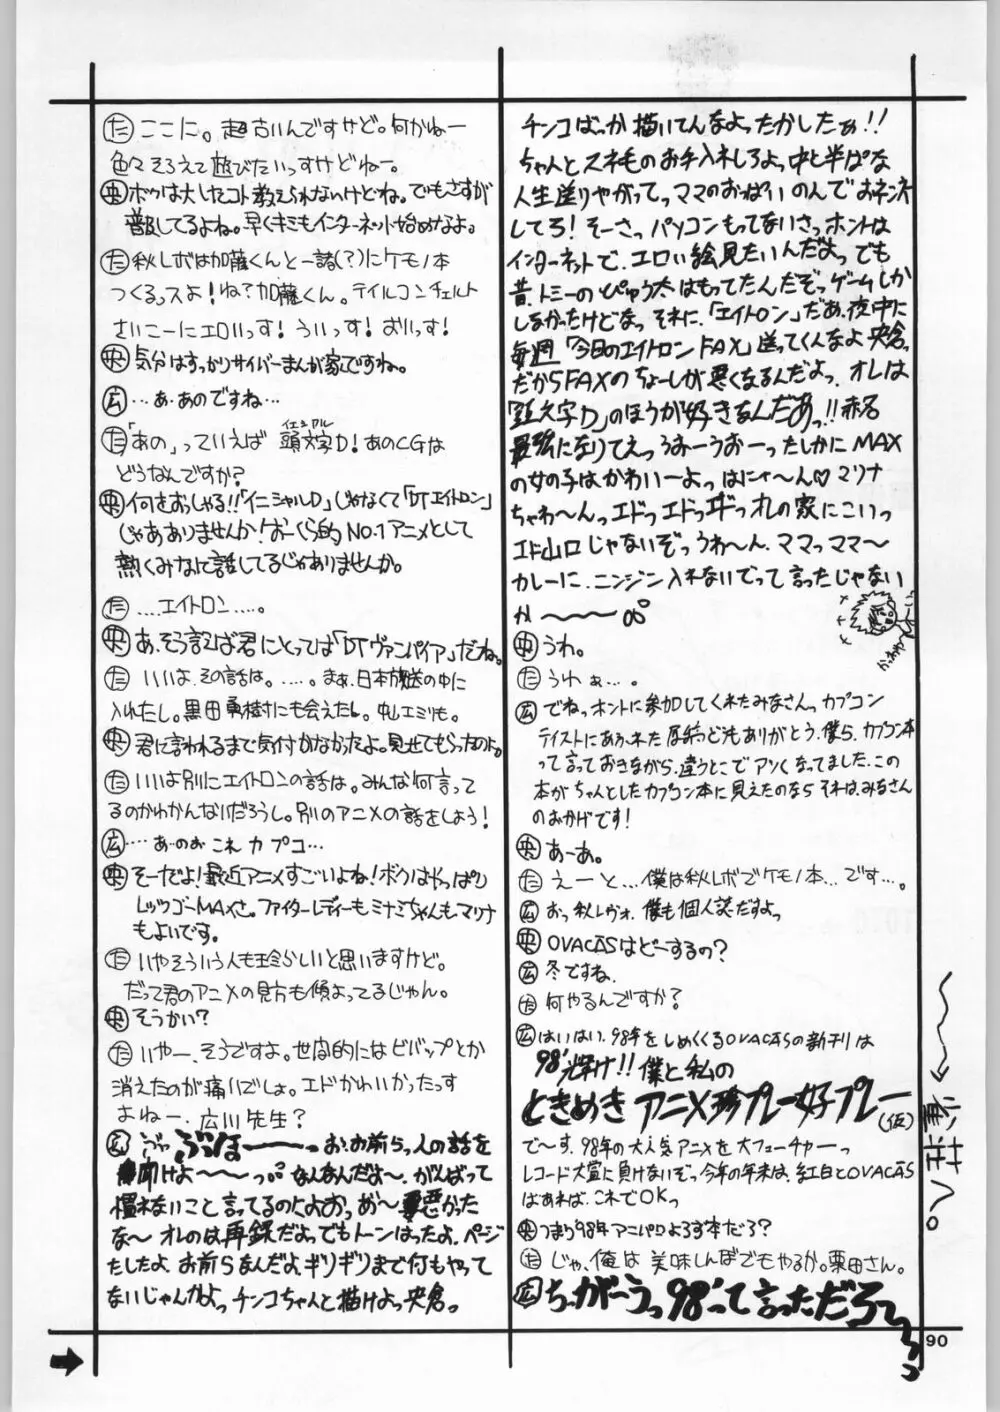 (た) ここに。超古いんですけど。何かねー
色々そろえて遊びたいっすけどねー。
(央) ボクは大したコト教えられないけどね。でもさすが
普及してるよね。早くキミもインターネット始めなよ。
(た) 秋レボは加藤くんと一諸(?)にケモノ本
つくるっスよ!ね?加藤くん。テイルコンチェルト
さいこーにエロいっす!ういっす!おいっす!
(央) 気分はすっかりサイバーまんが家ですね。
(広) …あ・あのですね…
(た) 「あの」っていえば 頭文字D!あのCGは
イニシャル
どうなんですか?
(央) 何をおっしゃる!!「イニシャルD」じゃなくて「DTエイトロン」
じゃあありませんか!おーくら的No.1アニメとして
熱くみなで話してるじゃありませんか。
(た) ....エイトロン....。
(央) あ、そう言えば君にとっては「DTヴァンパイア」だね。
(た) いいよ、その話は。....。まぁ、日本放送の中に
入れたし。黒田勇樹にも会えたし。中しエミリも。
(央) 君に言われるまで気付かなかったよ。見せてもらったのよ。
(た) いいよ別にエイトロンの話は。みんな何言って
るのかわかんないだろうし。別のアニメの話をしよう!
(広) …あ・のお これ カプコ…
(央) そーだよ!最近アニメすごいよね!ボクはやっぱり
レッツゴーMAXさ。ファイターレディーも・ミナミちゃんも・マリナ
もよいです。
(た) いやそういう人も珍らしいと思いますけど。
だって君のアニメの見方も傾よってるじゃん。
(央) そうかい?
(た) いやー、そうですよ。世間的にはビバップとか
消えたのが痛いでしょ。エドかわいかったっす
よねー、広川先生?
(広) ぶっ ぶっほーーーーっ お、お前ら、人の話を
聞けよ〜〜〜っ°° なんなんだよ〜、がんばって
慣れないこと言ってるのによおっ、め〜悪かった
な〜 オレのは再録だよっでもトーンはったよ、ページ
たしたよ、お前らなんだよ、ギリギリまで何もやって
ないじゃんかよっ チンコちゃんと描けよっ央倉っ
チンコばっか描いてんなよったかしたぁ!!
ちゃんとスネ毛のお手入れしろよっ中と半ぱな
人生送りやがってっママのおっぱい のんでおネンネ
してろ!そーさっ パソコンもってないさっホントは
インターネットで、エロい絵見たいんだよっ でも
昔、トミーの ぴゅう太はもってたんだぞっゲームしか
しなかったけどなっ それに、「エイトロン」だあ、夜中に
毎週「今日のエイトロンFAX」送ってくんなよ央倉っ
だからFAXのちょーしが悪くなるんだよっ、オレは
「頭文字D」のほうが好きなんだあっ!!赤名
最強になりてえっうおーうおーったしかにMAX
の女の子はかわいーよっ はにゃ〜ん♡マリナ
ちゃわ〜んっエドっエドっエドっオレの家にこいっ
エド山口じゃないぞっうわ〜ん、ママっママ〜
カレーに、ニンジン入れないでって言ったじゃない
か〜〜〜〜°°
(央) うわ。
(た) うわぁ…。
(広) でねっホントに参加してくれたみなさんっ カプコン
テイストにあふれた原稿っどうもありがとう、僕ら、カプコン本
って言っておきながら、違うとこでアツくなってました、この
本がちゃんとしたカプコン本に見えたのなら それは、みなさん
のおかげです!
(央) あーあ。
(た) えーと…僕は秋レボでケモノ本…です…。
(広) おっ秋レヴォ、僕も個人誌だすよっ
(央) OVACASはどーするの?
(広) 冬ですね、
(た) 何やるんですか?
(広) はいはい、98年をしめくくるOVACASの新刊は
98'輝け!! 僕と私の
ときめき アニメ珍プレー好プレー(仮)
で〜す、98年の大人気アニメを大フューチャーっ
レコード大賞に負けないぞっ今年の年末は、紅白とOVACAS
はあれば、これでOKっ
(央) つまり98年アニパロよろず本だろ?
(た) じゃ、俺は 美味しんぼでもやるか。栗田さん。
(広) ちっがーうっ98'って言っただろ〜〜〜っ
90